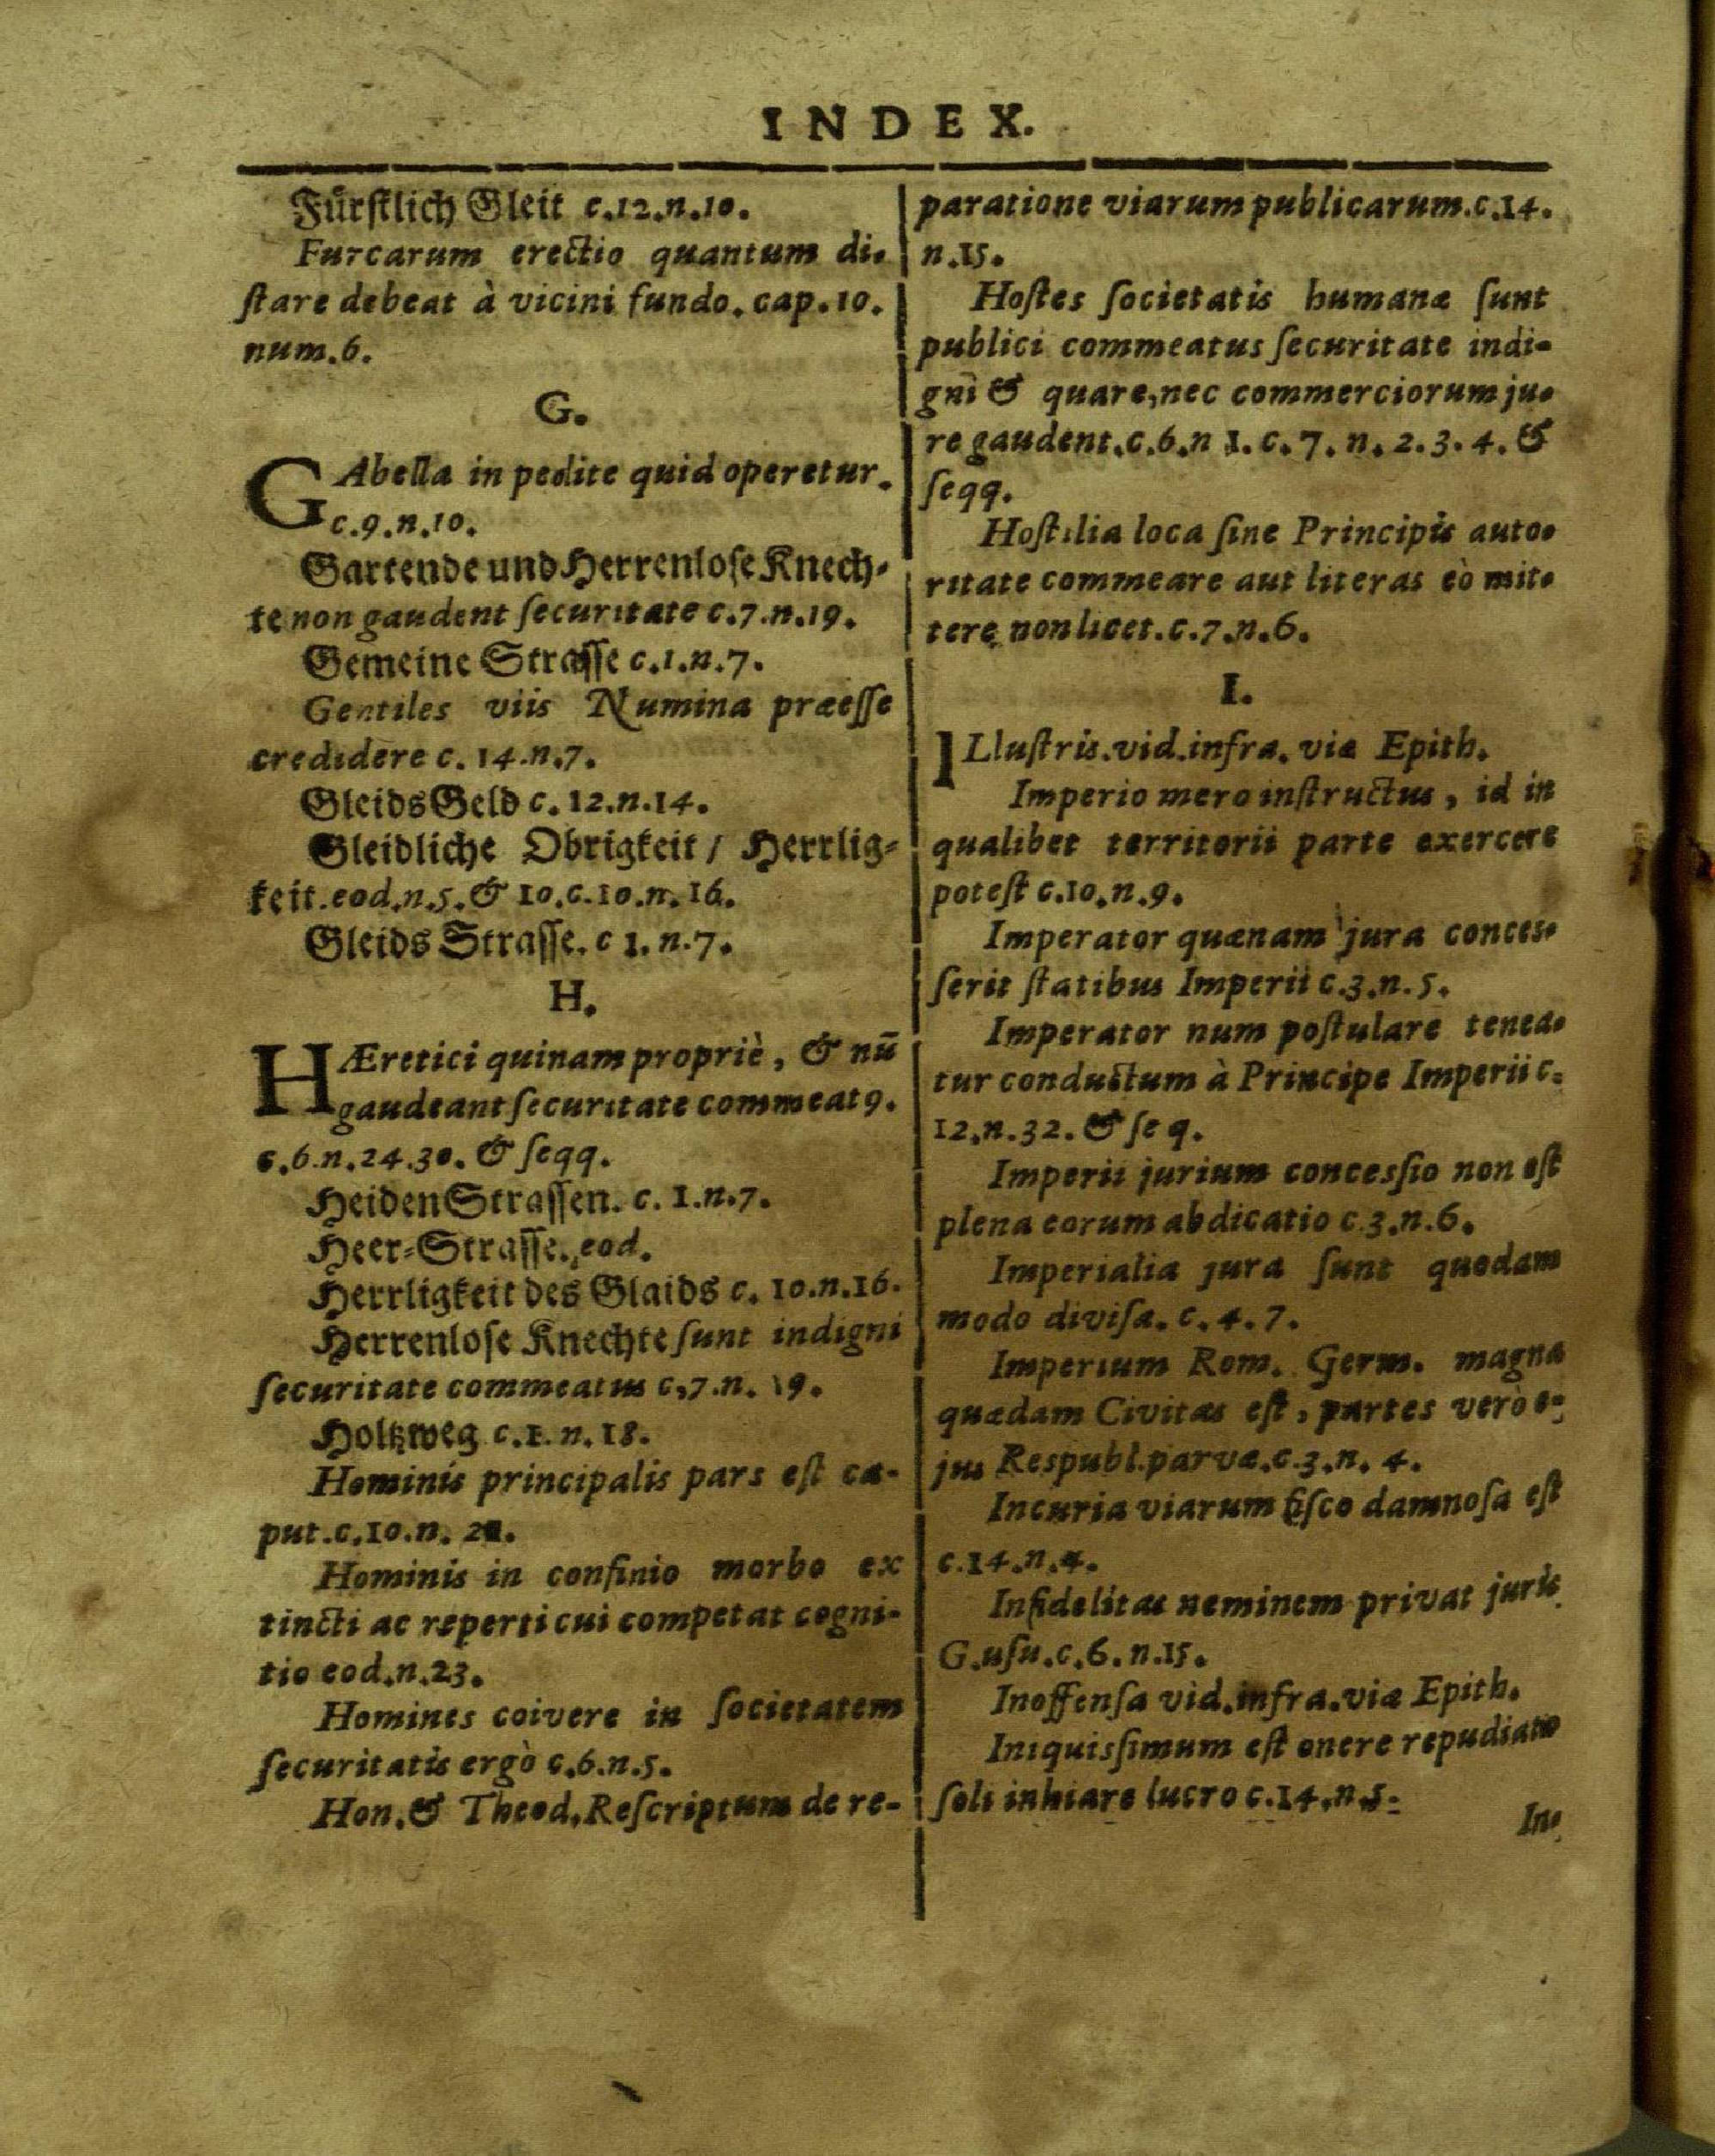 INDEX.
Fürſtlich Gleit c.12.n.10.
Furcarum erectio quantum di-
ſtare debeat à vicini fundo. cap.10.
num.6.
G.
GAbella in pedite quid operetur.
c.9.n.10.
Gartende und Herrenloſe Knech-
te non gaudent ſecuritate c.7.n.19.
Gemeine Straſſe c.1.n.7.
Gentiles viis Numina præeſſe
credidere c. 14.n.7.
Gleids Geld c. 12.n.14.
Gleidliche Obrigkeit / Herrlig-
keit.eod.n.5.& 10.c.10.n.16.
Gleids Straſſe. c 1. n.7.
H.
HÆretici quinam propriè, & nū
gaudeant ſecuritate commeat9.
c.6.n.24.30. & ſeqq.
Heiden Straſſen. c. 1.n.7.
Heer-Straſſe. eod.
Herrligkeit des Glaids c. 10.n.16.
Herrenloſe Knechte ſunt indigni
ſecuritate commeatus c,7.n. 19.
Holtzweg c.1. n.18.
Hominis principalis pars eſt ca-
put.c.10.n.
Hominis in confinio morbo ex
tincti ac reperti cui competat cogni-
tio eod.n.23.
Homines coivere in ſocietatem
ſecuritatis ergò c.6.n.5.
Hon.& Theod.Reſcriptum de re-
paratione viarum publicarum.c.14.
n.15.
Hoſtes ſocietatis humanæ ſunt
publici commeatus ſecuritate indi-
gni & quare,nec commerciorum ju-
re gaudent.c.6.n 1. c. 7. n. 2. 3. 4. &
ſeqq.
Hoſtilia loca ſine Principis auto-
ritate commeare aut literas eò mit-
tere non licet.c.7.n.6.
I.
ILluſtris.vid.infra. viæ Epith.
Imperio mero inſtructus, id in
qualibet territorii parte exercere
poteſt c.10.n.9.
Imperator quænam jura conceſ-
ſerit ſtatibus Imperii c.3.n.5.
Imperator num poſtulare tenea-
tur conductum à Principe Imperii c.
12.n.32. & ſeq.
Imperii jurium conceſſio non eſt
plena eorum abdicatio c.3.n.6.
Imperialia jura ſunt quodam
modo diviſa. c. 4. 7.
Imperium Rom. Germ. magna
quædam Civitas eſt, partes verò e-
jus Respubl.parvæ.c.3.n. 4.
Incuria viarum fiſco damnoſa eſt
c.14.n.4.
Infidelitas neminem privat juris
G.uſu.c.6.n.15.
Inoffenſa vid.infra.viæ Epith.
Iniquisſimum eſt onere repudiato
ſoli inhiare lucro c.14.n.5.
In-